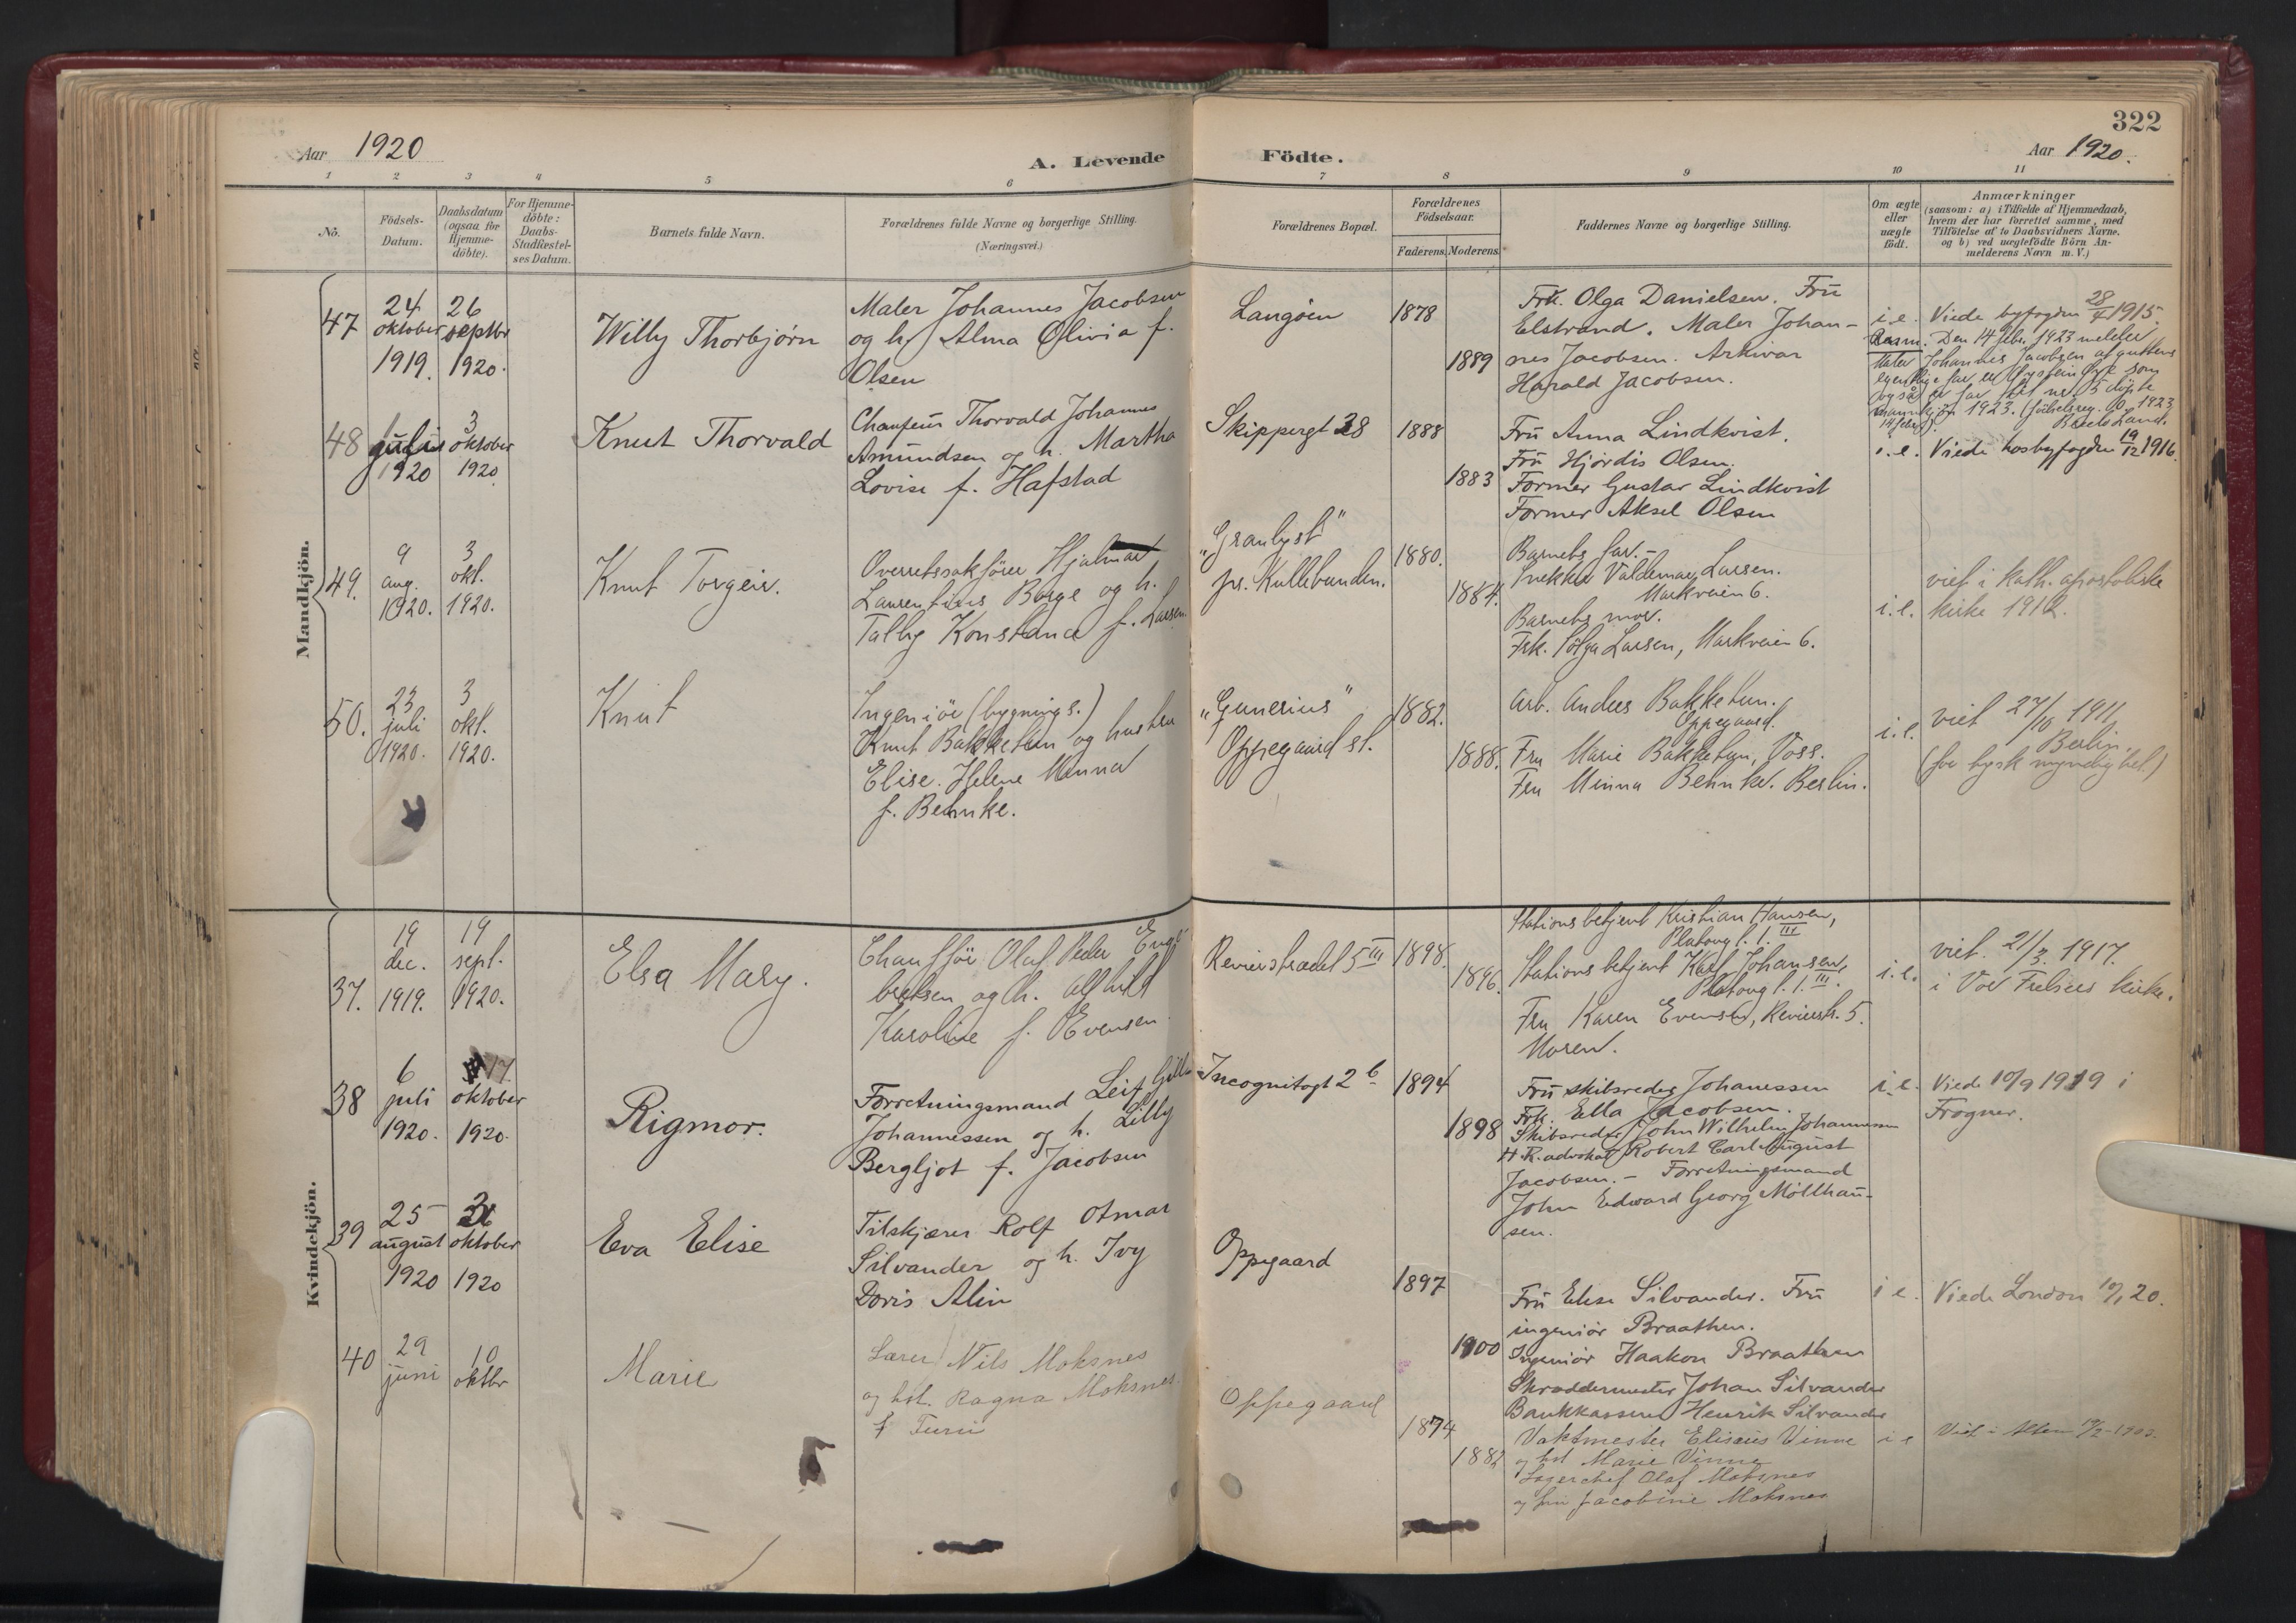 322
Aar 1920
A. Levende
Födte.
Aar 1920.
1 2 3 4 5 6 7 8 9 10 11
No.
Födsels-
Datum.
Daabsdatum
(ogsaa for
Hjemme-
döbte).
For Hjemme-
döbte:
Daabs-
Stadfæstel-
ses Datum.
Barnets fulde Navn.
Forældrenes fulde Navne og borgerlige Stilling.
(Næringsvei.)
Forældrenes Bopæl.
Forældrenes
Födselsaar.
Faderens.
Moderens.
Faddernes Navne og borgerlige Stilling.
Om ægte
eller
uægte
födt.
Anmærkninger
(saasom: a) i Tilfælde af Hjemmedaab,
hvem der har forrettet samme, med
Tilföielse af to Daabsvidners Navne.
og b) ved uægtefödte Börn An-
melderens Navn m. V.)
Mandkjön.
47
24
oktober
1919.
26
septbr
1920.
Willy Thorbjørn
Maler Johannes Jacobsen
og h. Alma Olivia f.
Olsen
Langøien
1878
1889
Frk. Olga Danielsen. Fru
Elstrand. Maler Johan-
nes Jacobsen. Arkivar
Harald Jacobsen.
i.e.
Viede byfogden 28/4 1915.
Den 14 febr. 1923 melder
Maler Johannes Jacobsen at guttens
egentlige far er
som
1923.
48
juli
1920
3
oktober
1920
Knut Thorvald
Chaufeur Thorvald Johannes
Amundsen og h. Martha
Lovise f. Hafstad
Skippergt 28
1888
1883
Fru Anna Lindkvist.
Fru Hjørdis Olsen.
Former Gustav Lindkvist
Former Aksel Olsen
i.e.
Viede hos byfogden 19/12 1916.
49.
9
aug.
1920.
3
okt.
1920.
Knut Torgeir.
Overretssakfører Hjalmar
Laurentius Borge og h.
Talby Konstance f. Larsen
„Granlyst"
pr. Kullebunden.
1880.
1884.
Barnets far. -
Snekker Valdemar Larsen.
Markveien 6.
Barnets mor.
Frk. Helga Larsen, Markveien 6.
i.e.
viet i kath. apostoliske
kirke 1912.
50.
23
juli
1920.
3
okt.
1920.
Knut
Ingeniör (bygnings.)
Knut Bakketun og hustru
Elise Helene Minna
f. Behnke.
„Gunerius"
Oppegaard st.
1882.
1888.
Arb. Anders Bakketun.
Oppegaard.
Fru Marie Bakketun, Voss.
Fru Minna Behnke. Berlin.
i.e.
viet 27/10 1911
Berlin.
(for tysk myndighet.)
Kvindekjön.
37.
19
dec.
1919.
19
sept.
1920.
Elsa Mary.
Chaufför Olaf Peder Engel
bretsen og h. Alfhild
Karoline f. Evensen
Revierstrædet 5 III
1898.
1896.
Stationsbetjent Kristian Hansen,
Platoug. 1. III
Stationsbetjent Karl Johansen,
Platoug. 1. III.
Fru Karen Evensen, Revierstr. 5.
Moren.
i.e.
viet. 21/3. 1917.
i Vor Frelsers kirke.
38
6
juli
1920.
17.
oktober
1920.
Rigmor.
Forretningsmand Leif
Johannessen og h. Lilly
Bergljot f. Jacobsen
Incognitogt 2 b
1894
1898
Fru skibsreder Johanessen
Frk. Ella Jacobsen.
Skibsreder John Wilhelm Johannessen
H.R. advokat Robert Carl August
Jacobsen. - Forretningsmand
John Edward Georg Möllhau-
sen.
i.e.
Viede 10/9 1919 i
Frogner.
39
25
august
1920
31
oktober
1920
Eva Elise
Tilskjærer Rolf Otmar
Silvander og h. Ivy
Doris Alin
Oppegaard
1897
1900
Fru Elise Silvander. Fru
ingeniør Braathen.
Ingeniør Haakon Braathen
Skræddermester Johan Silvander
Bankkasserer Henrik Silvander
i e.
Viede London 10/1 20.
40
29
juni
10
oktbr
Marie
Lærer Nils Moksnes
og hst. Ragna Moksnes
f
Oppegaard
1874
1882
Vaktmester Eliseus Vinne
og hst Marie Vinne
Lagerchef Olaf Moksnes
og fru Jacobine Moksnes
i e
Viet i